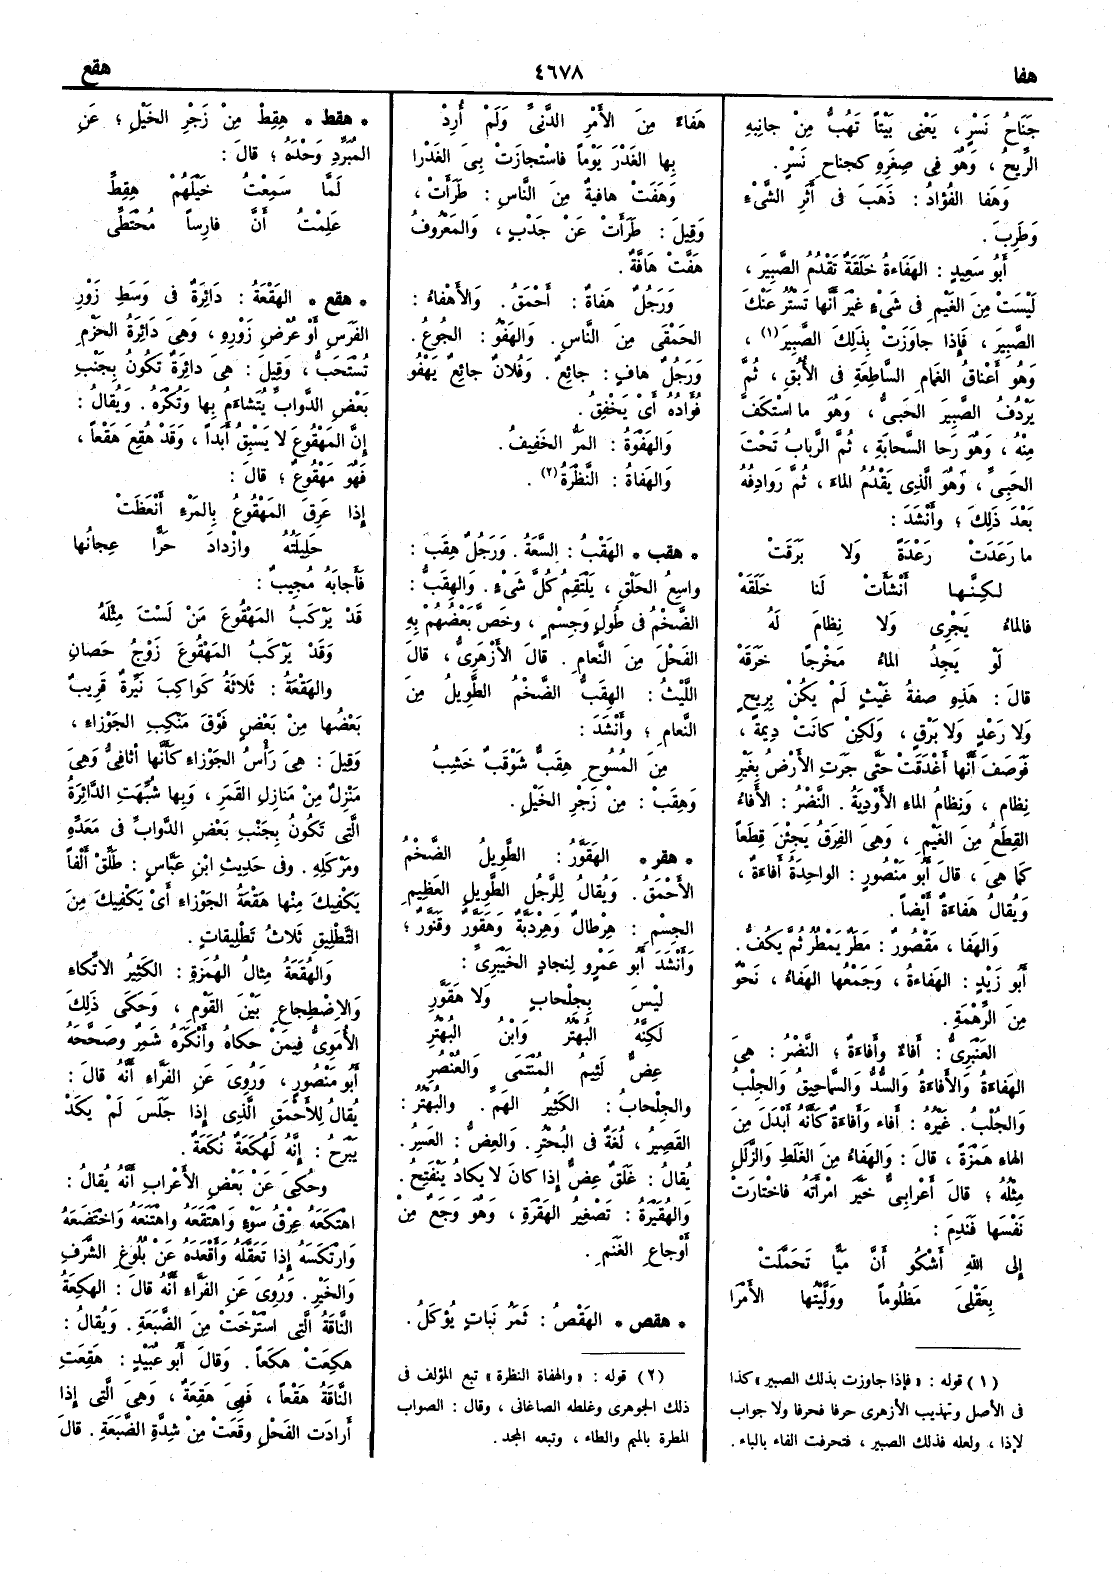 هفا
٤٦٧٨
هقع
جَنَاحُ نَسْرٍ ، يَعْنِى بَيْتاً تَهُبُّ مِنْ جانِبِهِ
الرِّيحُ ، وَهُوَ فِى صِغَرِهِ كجناح نَسْرٍ .
وَهَفا الفُؤادُ : ذَهَبَ فى أَثَرِ الشَّىْءِ
وَطَرِبَ .
أَبُو سَعِيدٍ : الهَفَاءَةُ خَلَقَةٌ تَقْدُمُ الصَّبِيرَ ،
لَيْسَتْ مِنَ الغَيْمِ فى شَىْءٍ غَيْرَ أَنَّها تَسْتُرُ عَنْكَ
الصَّبِيرَ ، فَإِذا جاوَزَتْ بِذَلِكَ الصَّبِيرَ (١) ،
وَهُو أَعْناقُ الغَمامِ السَّاطِعَةِ فى الأُفُقِ ، ثُمَّ
يَرْدُفُ الصَّبِيرَ الحَبِىُّ ، وَهُوَ ما اسْتَكَفَّ
مِنْهُ ، وَهُوَ رَحا السَّحابَةِ ، ثُمَّ الرَّبابُ تَحْتَ
الحَبِىِّ ، وَهُوَ الَّذِى يَقْدُمُ الماءَ ، ثُمَّ رَوادِفُهُ
بَعْدَ ذَلِكَ ؛ وأَنْشَدَ :
ما رَعَدَتْ رَعْدَةً وَلا بَرَقَتْ
لكِنَّها أَنْشَأَتْ لَنا خَلَقَهْ
فالماءُ يَجْرِى وَلا نِظامَ لَهُ
لَوْ يَجِدُ الماءُ مَخْرَجاً خَرَقَهْ
قالَ : هَذِهِ صِفةُ غَيْثٍ لَمْ يَكُنْ بِرِيحٍ
وَلا رَعْدٍ وَلا بَرْقٍ ، وَلكِنْ كانَتْ دِيمةً ،
فَوَصَفَ أَنَّها أَغْدَقَتْ حَتَّى جَرَتِ الأَرْضُ بِغَيْرِ
نِظامٍ ، وَنِظامُ الماءِ الأَوْدِيَةُ . النَّضْرُ : الأَفاءُ
القِطَعُ مِنَ الغَيْمِ ، وَهِىَ الفِرَقُ يَجِئْنَ قِطَعاً
كما هِىَ ، قالَ أَبُو مَنْصُورٍ : الواحِدَةُ أَفاءَةٌ ،
وَيُقالُ هَفاءَةٌ أَيْضاً .
وَالهَفا ، مَقْصُورٌ : مَطَرٌ يَمْطُرُ ثُمَّ يَكُفُّ .
أَبُو زَيْدٍ : الهَفاءَةُ ، وَجَمْعُها الهَفاءُ ، نَحْوٌ
مِنَ الرِّهْمَةِ .
العَنْبَرِىُّ : أَفاءٌ وَأَفاءَةٌ ؛ النَّضْرُ : هِىَ
الهَفاءَةُ وَالأَفاءَةُ وَالسُّدُّ وَالسَّماحِيقُ وَالجِلْبُ
وَالجُلْبُ . غَيْرُهُ : أَفاء وَأَفاءَة كَأَنَّهُ أَبْدَلَ مِنَ
الهاءِ هَمْزَةً ، قالَ : وَالهَفاءُ مِنَ الغَلَطِ وَالزَّلَلِ
مِثْلُهُ ؛ قالَ أَعْرابِىٌّ خَيَّرَ امْرَأَتَهُ فاخْتارَتْ
نَفْسَها فَنَدِمَ :
إلى اللهِ أَشْكُو أَنَّ مَيًّا تَحَمَّلَتْ
بِعَقْلِىَ مَظْلُوماً وَوَلَّيْتُها الأَمْرَا
(١) قوله : « فإذا جاوزت بذلك الصبير » كذا
فى الأصل وتهذيب الأزهرى حرفا فحرفا ولا جواب
لإذا ، ولعله فذلك الصبير ، فتحرفت الفاء بالباء .
هَفاءٌ مِنَ الأَمْرِ الدَّنِىِّ وَلَمْ أُرِدْ
بِها الغَدْرَ يَوْماً فاستَجازَتْ بِىَ الغَدْرا
وَهَفَتْ هافِيةٌ مِنَ النَّاسِ : طَرَأَتْ ،
وَقِيلَ : طَرَأَتْ عَنْ جَدْبٍ ، وَالمَعْرُوفُ
هَفَّتْ هَافَّةٌ .
وَرَجُلٌ هَفاةٌ : أَحْمَقُ . وَالأَهْفاءُ :
الحَمْقَى مِنَ النَّاسِ . وَالهَفْوُ : الجُوعُ .
وَرَجُلٌ هافٍ : جائِعٌ . وَفُلانٌ جائِعٌ يَهْفُو
فُؤادُهُ أَىْ يَخْفِقُ .
وَالهَفْوَةُ : المَرُّ الخَفِيفُ .
وَالهَفاةُ : النَّظْرَةُ (٢) .
• هقب • الهَقْبُ : السَّعَةُ . وَرَجُلٌ هِقَب :
واسِعُ الحَلْقِ ، يَلْتَقِمُ كُلَّ شَىْءٍ . وَالهِقَبُّ :
الضَّخْمُ فى طُولٍ وَجِسْمٍ ، وَخَصَّ بَعْضُهُمْ بِهِ
الفَحْلَ مِنَ النَّعامِ . قالَ الأَزْهَرِىُّ ، قالَ
اللَّيْثُ : الهِقَبُّ الضَّخْمُ الطَّوِيلُ مِنَ
النَّعامِ ؛ وأَنْشَدَ :
مِنَ المُسُوحِ هِقَبٌّ شَوْقَبٌ خَشِبُ
وَهِقَبْ : مِنْ زَجْرِ الخَيْلِ .
• هقر • الهَقَوَّرُ : الطَّوِيلُ الضَّخْمُ
الأَحْمَقُ . وَيُقالُ لِلرَّجُلِ الطَّوِيلِ العَظِيمِ
الجِسْمِ : هِرْطالٌ وَهِرْدَبَّةٌ وَهَقَوَّرٌ وَقَنَوَّرٌ ؛
وَأَنْشَدَ أَبُو عَمْرٍو لِنجادٍ الخَيْبَرِىِّ :
لَيْسَ بِجِلْحابٍ وَلا هَقَوَّرِ
لَكِنَّهُ البُهْتُرُ وَابْنُ البُهْتُرِ
عِضٌّ لَئِيمُ المُنْتَمَى وَالعُنْصُرِ
والجِلْحابُ : الكَثِيرُ الهَمِّ . والبُهْتُرُ :
القَصِيرُ ، لُغَةٌ فى البُحْتُرِ . وَالعِضُّ : العَسِرُ .
يُقالُ : غَلَقٌ عِضٌّ إذا كانَ لا يَكادُ يَنْفَتِحُ .
وَالهُقَيْرَةُ : تَصْغِيرُ الهَقْرَةِ ، وَهُوَ وَجَعٌ مِنْ
أَوْجاعِ الغَنَمِ .
• هقص • الهَقْصُ : ثَمَرُ نَباتٍ يُؤْكَلُ .
(٢) قوله : « والهفاة النظرة » تبع المؤلف فى
ذلك الجوهرى وغلطه الصاغانى ، وقال : الصواب
المطرة بالميم والطاء ، وتبعه المجد .
• هقط • هِقِطْ مِنْ زَجْرِ الخَيْلِ ؛ عَنِ
المُبَرِّدِ وَحْدَهُ ؛ قالَ :
لَمَّا سَمِعْتُ خَيْلَهُمْ هِقِطِّ
عَلِمْتُ أَنَّ فارِساً مُحْتَطِّى
• هقع • الهَقْعَةُ : دَائِرَةٌ فى وَسَطِ زَوْرِ
الفَرَسِ أَوْ عُرْضِ زَوْرِهِ ، وَهِىَ دَائِرَةُ الحَزْمِ
تُسْتَحَبُّ ، وَقِيلَ : هِىَ دائِرَةٌ تَكُونُ بِجَنْبِ
بَعْضِ الدَّوابِّ يُتَشاءَمُ بِها وَتُكْرَهُ . وَيُقالُ :
إنَّ المَهْقُوعَ لا يَسْبِقُ أَبَداً ، وَقَدْ هُقِعَ هَقْعاً ،
فَهُوَ مَهْقُوعٌ ؛ قالَ :
إذا عَرِقَ المَهْقُوعُ بِالمَرْءِ أَنْعَظَتْ
حَلِيلَتُهُ وازْدادَ حَرًّا عِجانُها
فَأَجابَهُ مُجِيبٌ :
قَدْ يَرْكَبُ المَهْقُوعَ مَنْ لَسْتَ مِثْلَهُ
وَقَدْ يَرْكَبُ المَهْقُوعَ زَوْجُ حَصانِ
والهَقْعَةُ : ثَلاثَةُ كَواكِبَ نَيِّرَةٌ قَرِيبٌ
بَعْضُها مِنْ بَعْضٍ فَوْقَ مَنْكِبِ الجَوْزاءِ ،
وَقِيلَ : هِىَ رَأْسُ الجَوْزاءِ كَأَنَّها أَثافِىُّ وَهِىَ
مَنْزِلٌ مِنْ مَنازِلِ القَمَرِ ، وَبِها شُبِّهَتِ الدَّائِرَةُ
الَّتِى تَكُونُ بِجَنْبِ بَعْضِ الدَّوابِّ فى مَعَدِّهِ
ومَرْكَلِهِ . وفى حَدِيثِ ابْنِ عَبَّاسٍ : طَلِّقْ أَلْفاً
يَكْفِيكَ مِنْها هَقْعَةُ الجَوْزاءِ أَىْ يَكْفِيكَ مِنَ
التَّطْلِيقِ ثَلاثُ تَطْلِيقاتٍ .
وَالهُقَعَةُ مِثالُ الهُمَزَةِ : الكَثِيرُ الاتِّكاءِ
وَالاِضْطِجاعِ بَيْنَ القَوْمِ ، وَحَكَى ذَلِكَ
الأُمَوِىُّ فِيمَنْ حَكاهُ وَأَنْكَرَهُ شَمِرٌ وَصَحَّحَهُ
أَبُو مَنْصُورٍ ، وَرُوِىَ عَنِ الفَرَّاءِ أَنَّهُ قالَ :
يُقالُ لِلْأَحْمَقِ الَّذِى إِذا جَلَسَ لَمْ يَكَدْ
يَبْرَحُ : إِنَّهُ لَهُكَعَةٌ نُكَعَةٌ .
وحُكِىَ عَنْ بَعْضِ الأَعْرابِ أَنَّهُ يُقالُ :
اهْتَكَعَهُ عِرْقُ سَوْءٍ وَاهْتَقَعَهُ واهْتَنَعَهُ وَاخْتَضَعَهُ
وَارْتَكَسَهُ إذا تَعَقَّلَهُ وَأَقْعَدَهُ عَنْ بُلُوغِ الشَّرَفِ
وَالخَيْرِ . وَرُوِىَ عَنِ الفَرَّاءِ أَنَّهُ قالَ : الهكِعَةُ
النَّاقَةُ الَّتِى اسْتَرْخَتْ مِنَ الضَّبَعَةِ . وَيُقالُ :
هكِعَتْ هكَعاً . وَقالَ أَبو عُبَيْدٍ : هَقِعَتِ
النَّاقَةُ هَقْعاً ، فَهِىَ هَقِعَةٌ ، وَهِىَ الَّتِى إِذا
أَرادَت الفَحْلَ وَقَعَتْ مِنْ شِدَّةِ الضَّبَعَةِ . قالَ